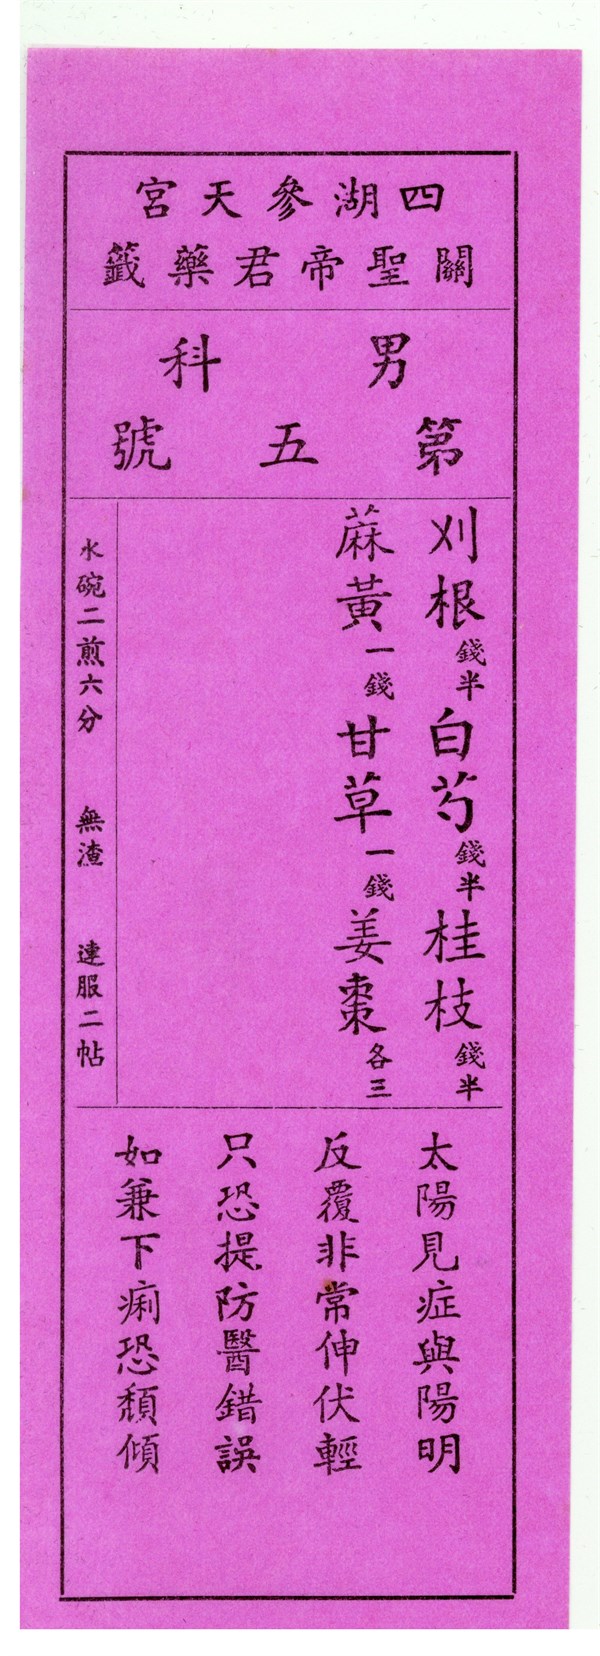 四湖參天宮
關聖帝君藥籤
男科
第五號
刈根錢半白芍錢半桂枝錢半
蔴黃一錢甘草一錢姜棗各三
水碗二煎六分 無渣 連服二帖
太陽見症與陽明
反覆非常伸伏輕
只恐提防醫錯誤
如兼下痢恐頹傾